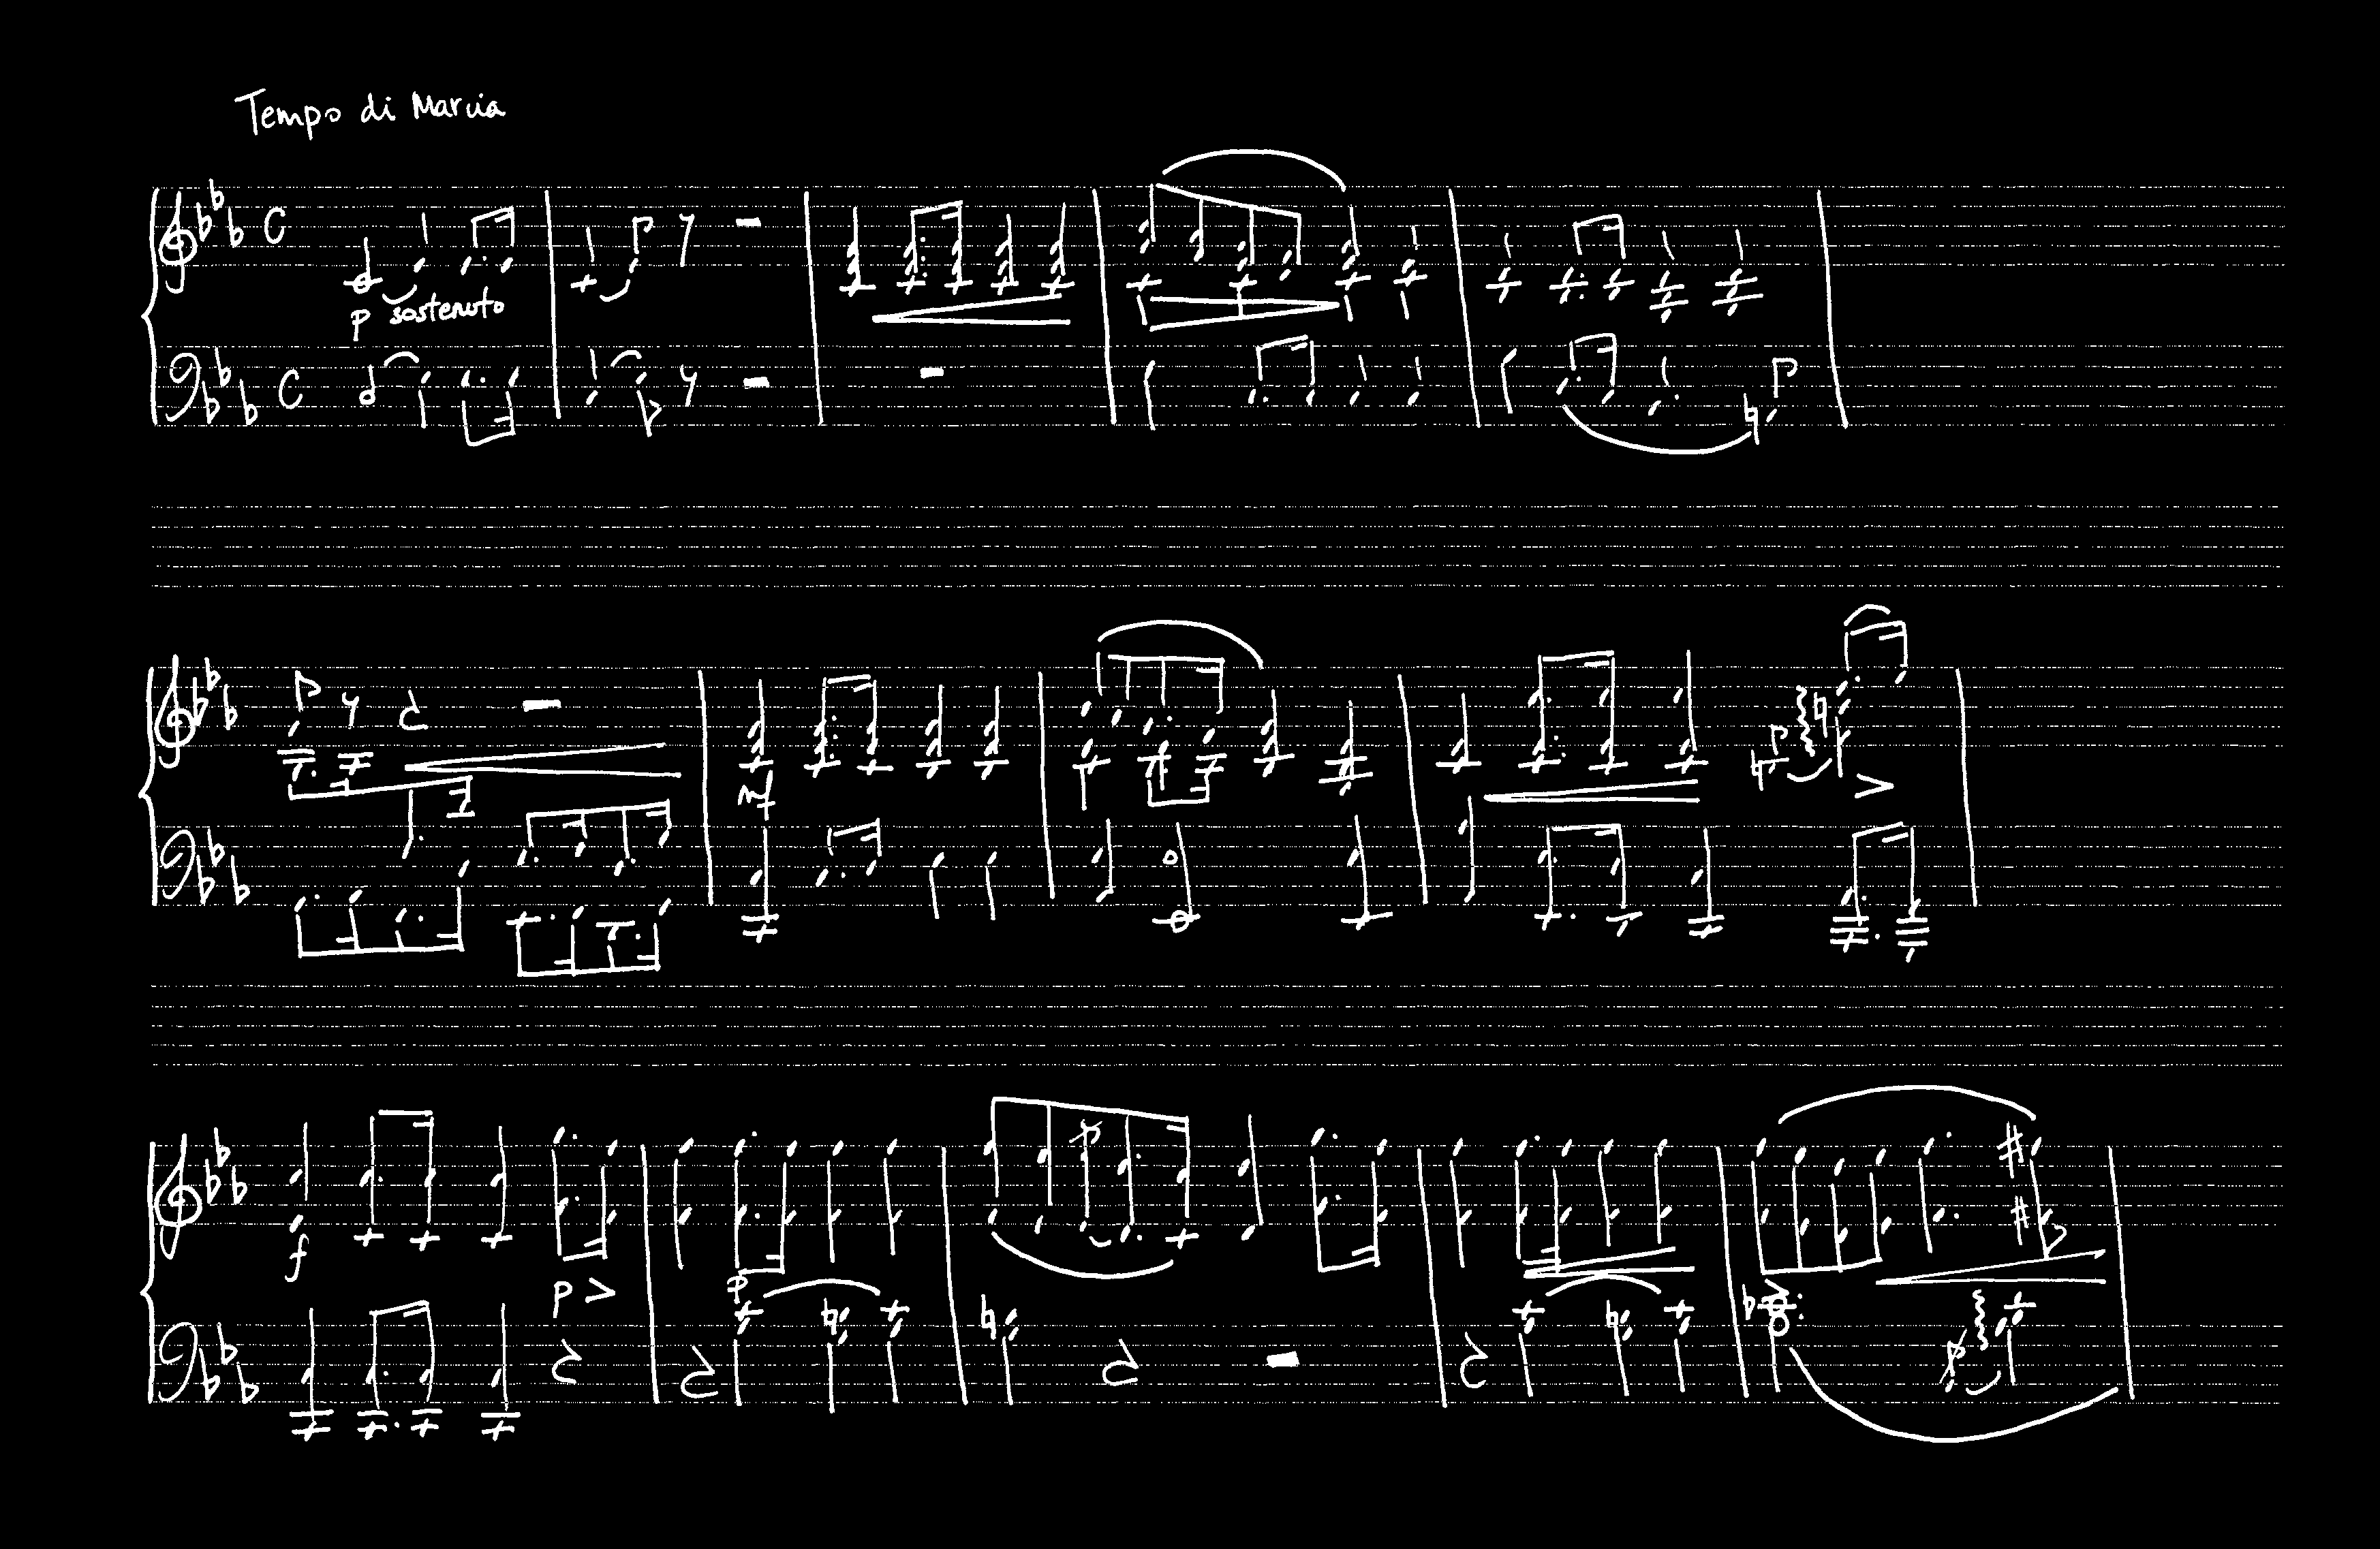 Tempo di Marcia
p sostenuto
mf
f
p
p